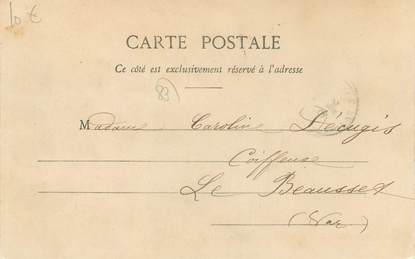 10 €
CARTE POSTALE
Ce côté est exclusivement réservé à l'adresse
83
Madame Caroline Décugis
Coiffeuse
Le Beausset
(Var)